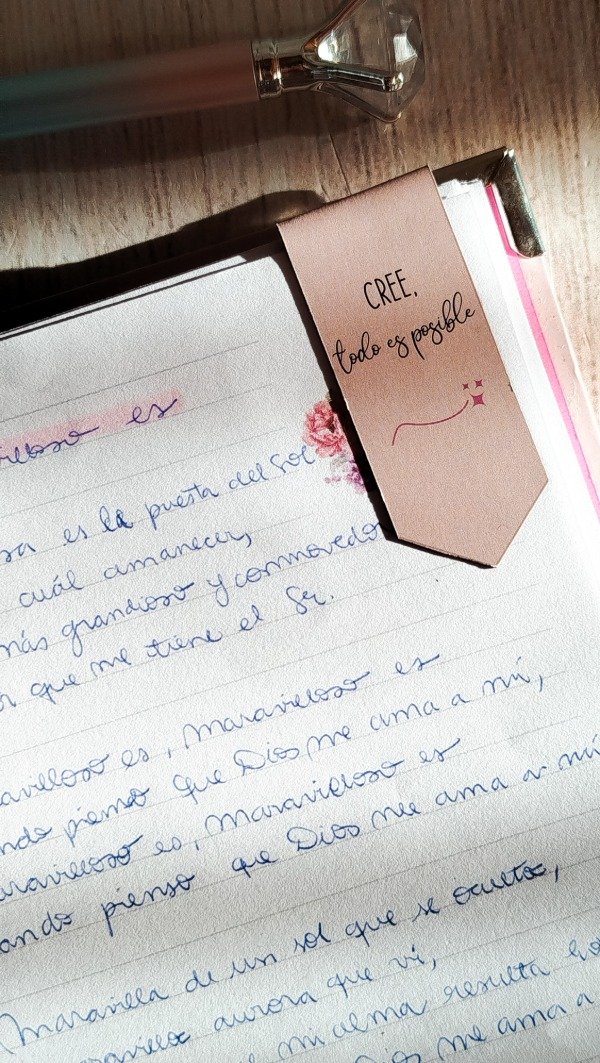 CREE,
todo es posible
es
es la puesta del Sol
cuál amanecer,
más grandioso y conmovedo
que me tiene el Sr.
es, maravilloso es
pienso que Dios me ama a mí,
es, maravilloso es
pienso que Dios me ama a mí
Maravilla de un sol que se oculta,
aurora que vi,
mi alma resulta
me ama a